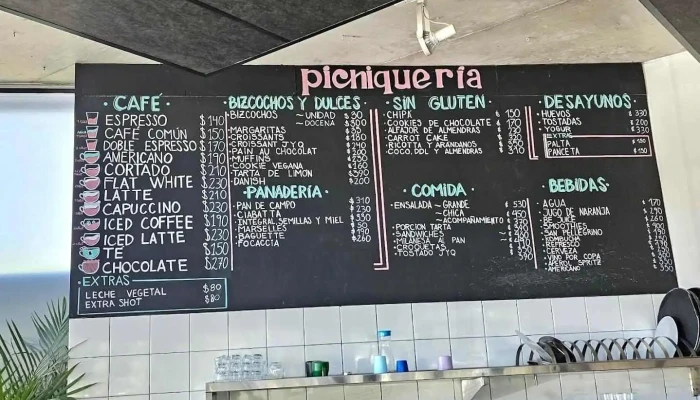 picniquería
CAFÉ
ESPRESSO $140
CAFÉ COMÚN $150
DOBLE ESPRESSO $170
AMERICANO $190
CORTADO $210
FLAT WHITE $230
LATTE $210
CAPUCCINO $230
ICED COFFEE $190
ICED LATTE $230
TÉ $150
CHOCOLATE $270
EXTRAS
LECHE VEGETAL $80
EXTRA SHOT $80
BIZCOCHOS Y DULCES
BIZCOCHOS UNIDAD
DOCENA
MARGARITAS
CROISSANTS
CROISSANT JYQ
PAIN AU CHOCOLAT
MUFFINS
COOKIE VEGANA
TARTA DE LIMON
DANISH $200
PANADERÍA
PAN DE CAMPO $310
CIABATTA
INTEGRAL SEMILLAS Y MIEL
MARSELLES
BAGUETTE
FOCACCIA $260
SIN GLUTEN
CHIPÁ $150
COOKIES DE CHOCOLATE $170
ALFAJOR DE ALMENDRAS
CARROT CAKE
RICOTTA Y ARÁNDANOS
COCO, DDL Y ALMENDRAS
COMIDA
ENSALADA GRANDE $530
CHICA
ACOMPAÑAMIENTO
PORCION TARTA
SANDWICHES
MILANESA AL PAN
CROQUETAS
TOSTADO JYQ
DESAYUNOS
HUEVOS $330
TOSTADAS $200
YOGUR $330
EXTRAS
PALTA
PANCETA
BEBIDAS
AGUA
JUGO DE NARANJA
BE JUICE
SMOOTHIES
SAN PELLEGRINO
KOMBUCHA
REFRESCO
CERVEZA
VINO POR COPA
APEROL SPRITZ
AMERICANO $350